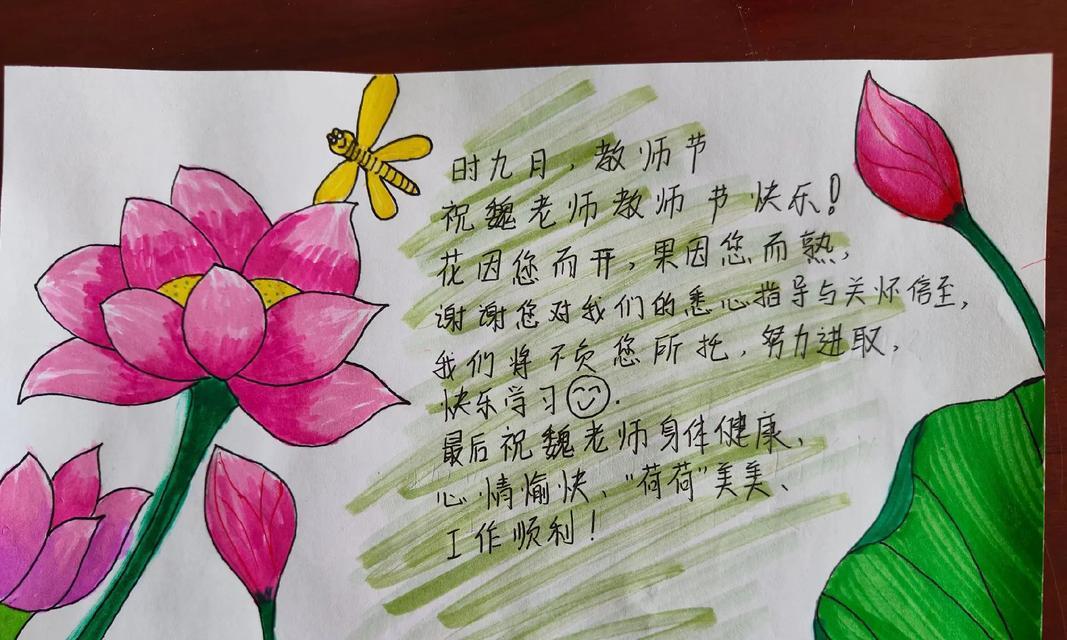 时九月，教师节
祝魏老师教师节快乐！
花因您而开，果因您而熟，
谢谢您对我们的悉心指导与关怀倍至，
我们将不负您所托，努力进取，
快乐学习😊.
最后祝魏老师身体健康、
心情愉快、“荷荷”美美、
工作顺利！